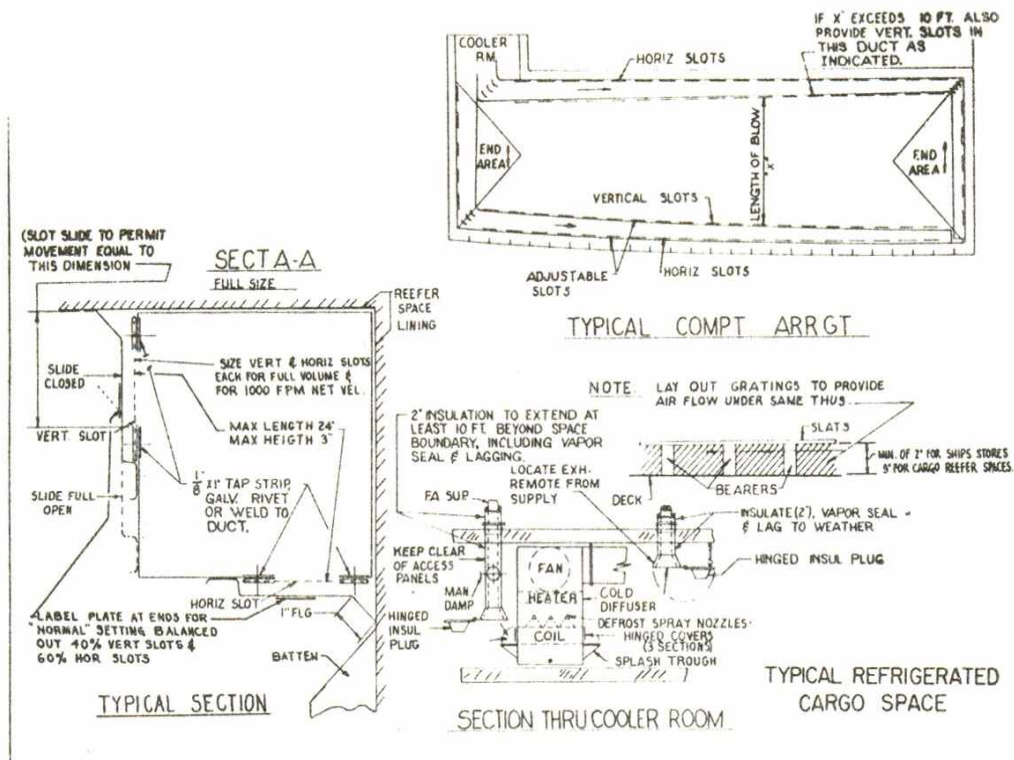 IF X EXCEEDS 10 FT. ALSO
PROVIDE VERT. SLOTS IN
THIS DUCT AS
INDICATED.
COOLER
RM.
HORIZ SLOTS
END
AREA
LENGTH OF BLOW
"X"
END
AREA
VERTICAL SLOTS
ADJUSTABLE
SLOTS
HORIZ SLOTS
TYPICAL COMPT ARRGT
(SLOT SLIDE TO PERMIT
MOVEMENT EQUAL TO
THIS DIMENSION
SECT A-A
FULL SIZE
REEFER
SPACE
LINING
SLIDE
CLOSED
SIZE VERT & HORIZ SLOTS
EACH FOR FULL VOLUME &
FOR 1000 FPM NET VEL.
MAX LENGTH 24"
MAX HEIGTH 3"
VERT. SLOT
1/8 X 1" TAP STRIP
GALV. RIVET
OR WELD TO
DUCT.
SLIDE FULL
OPEN
HORIZ SLOT
1" FLG
LABEL PLATE AT ENDS FOR
"NORMAL" SETTING BALANCED
OUT 40% VERT SLOTS &
60% HOR SLOTS
BATTEN
TYPICAL SECTION
NOTE: LAY OUT GRATINGS TO PROVIDE
AIR FLOW UNDER SAME THUS
SLATS
MIN. OF 2" FOR SHIPS STORES
3" FOR CARGO REEFER SPACES.
DECK
BEARERS
2" INSULATION TO EXTEND AT
LEAST 10 FT. BEYOND SPACE
BOUNDARY, INCLUDING VAPOR
SEAL & LAGGING.
LOCATE EXH.
REMOTE FROM
SUPPLY
FA SUP
INSULATE (2"), VAPOR SEAL
& LAG TO WEATHER
KEEP CLEAR
OF ACCESS
PANELS
FAN
HINGED INSUL PLUG
MAN
DAMP
HEATER
COLD
DIFFUSER
HINGED
INSUL
PLUG
DEFROST SPRAY NOZZLES
COIL
HINGED COVERS
(3 SECTIONS)
SPLASH TROUGH
SECTION THRU COOLER ROOM
TYPICAL REFRIGERATED
CARGO SPACE